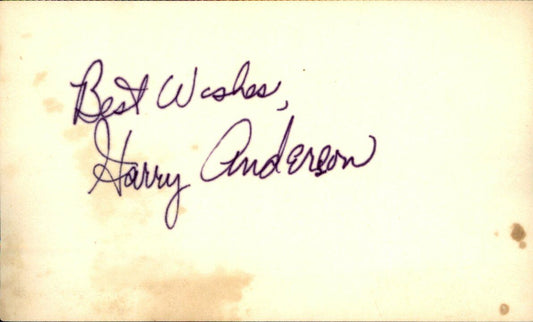 Best Wishes,
Harry Anderson